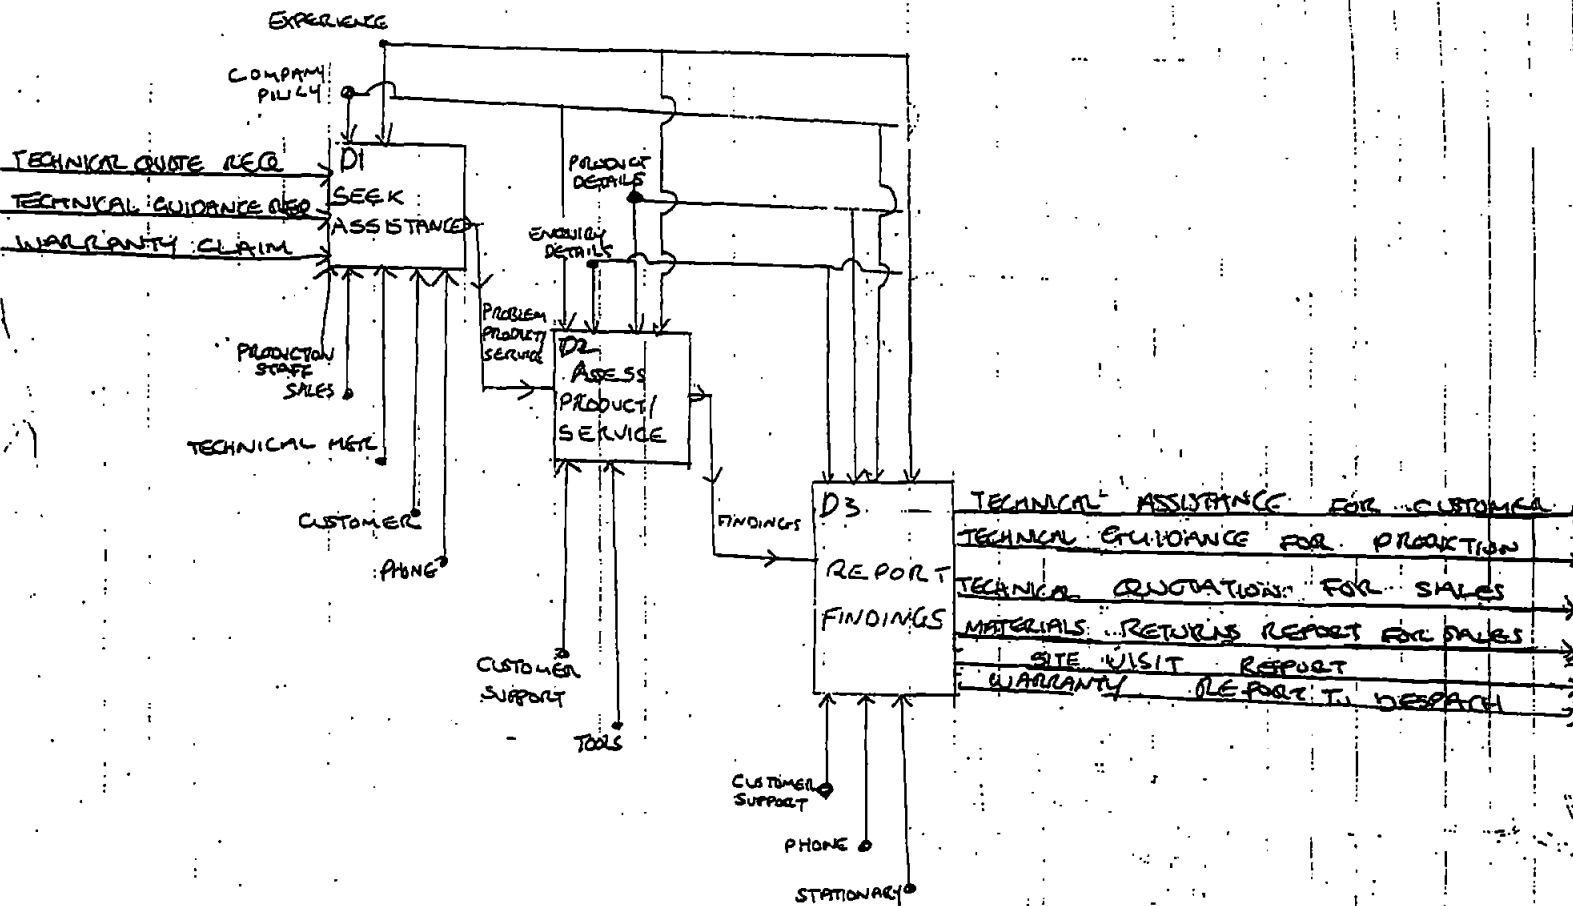 EXPERIENCE
COMPANY
PILICY
TECHNICAL QUOTE REQ
TECHNICAL GUIDANCE REQ
WARRANTY CLAIM
D1
SEEK
ASSISTANCE
PRODUCT
DETAILS
ENQUIRY
DETAILS
PROBLEM
PRODUCT/
SERVICE
D2
ASSESS
PRODUCT/
SERVICE
PRODUCTION
STAFF
SALES
TECHNICAL MGR
CUSTOMER
PHONE
FINDINGS
CUSTOMER
SUPPORT
TOOLS
D3
REPORT
FINDINGS
TECHNICAL ASSISTANCE FOR CUSTOMER
TECHNICAL GUIDANCE FOR PRODUCTION
TECHNICAL QUOTATION FOR SALES
MATERIALS RETURNS REPORT FOR SALES
SITE VISIT REPORT
WARRANTY REPORT TO DESPACH
CUSTOMER
SUPPORT
PHONE
STATIONARY